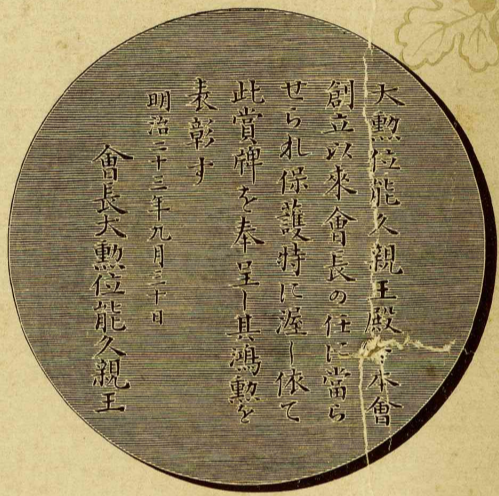 大勲位能久親王殿下本會
創立以來會長の任に當ら
せられ保護特に渥し依て
此賞牌を奉呈し其鴻勲を
表彰す
明治二十三年九月三十日
會長大勲位能久親王